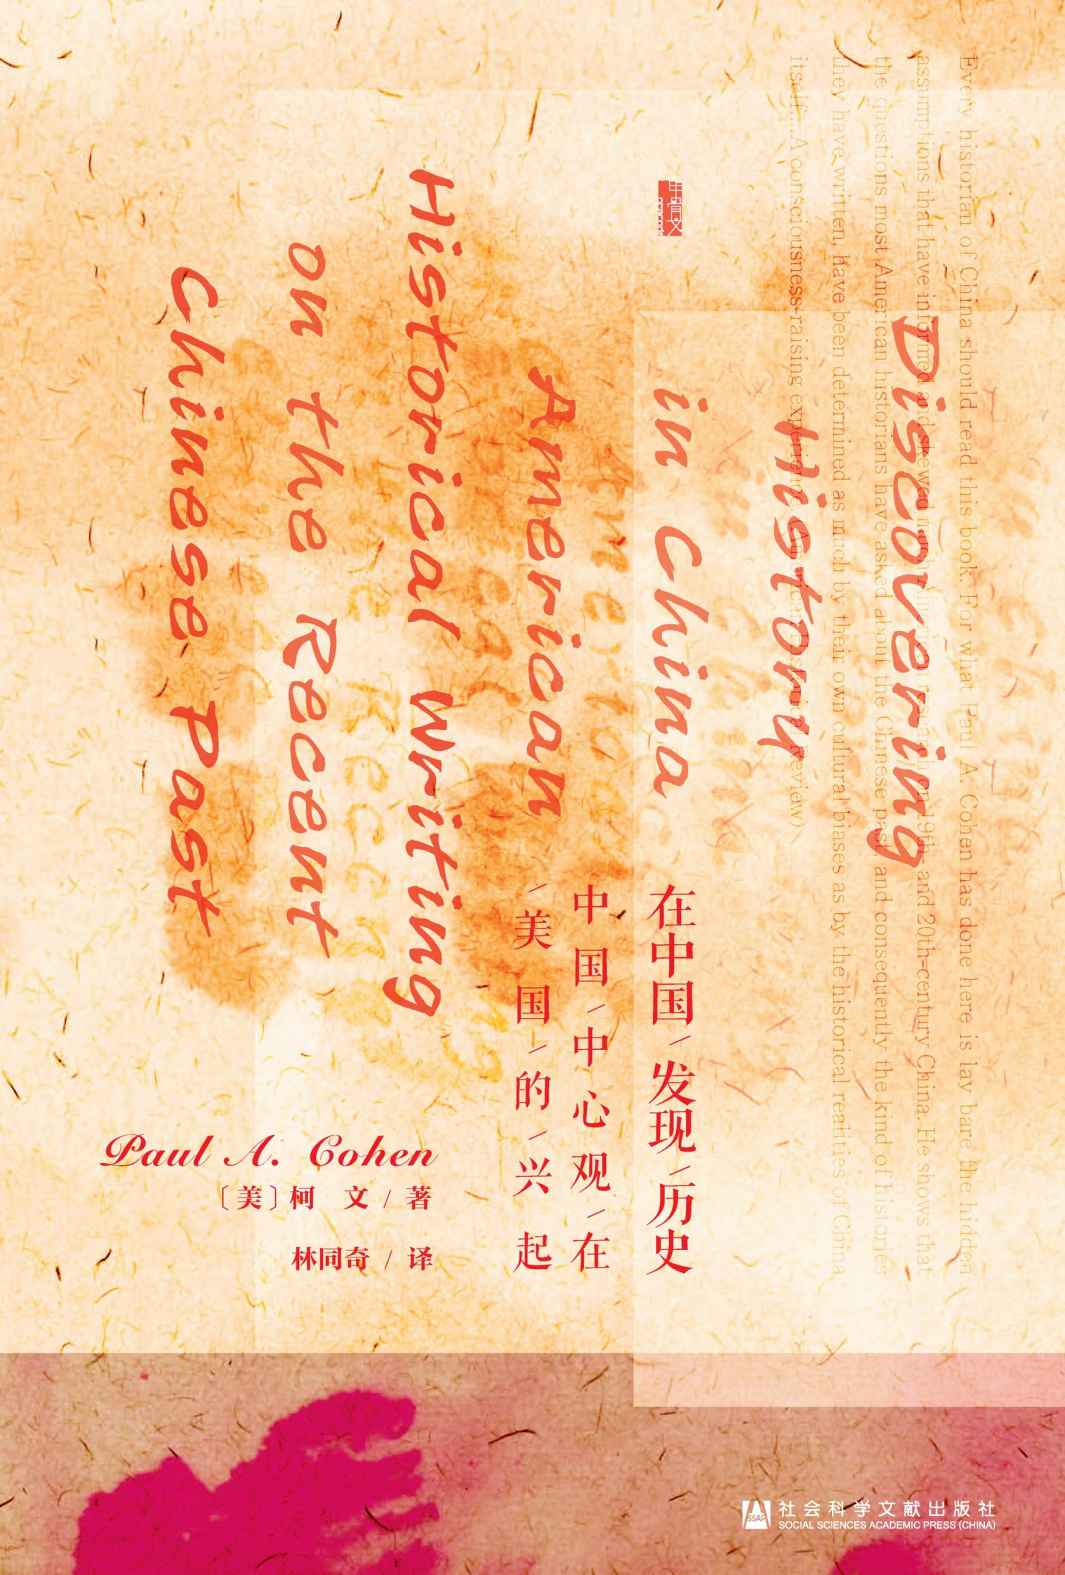 Every historian of China should read this book. For what Paul A. Cohen has done here is lay bare the hidden
assumptions that have informed and skewed
19th- and 20th-century China. He shows that
the questions most American historians have asked about the Chinese past and consequently the kind of histories
they have written, have been determined as much by their own cultural biases as by the historical realities of China
itself.... A consciousness-raising experience.
Discovering
History
in China
American
Historical Writing
on the Recent
Chinese Past
甲骨文
在中国/发现/历史
中国/中心观/在
/美国/的/兴起
Paul A. Cohen
〔美〕柯 文 / 著
林同奇 / 译
社会科学文献出版社
SOCIAL SCIENCES ACADEMIC PRESS (CHINA)